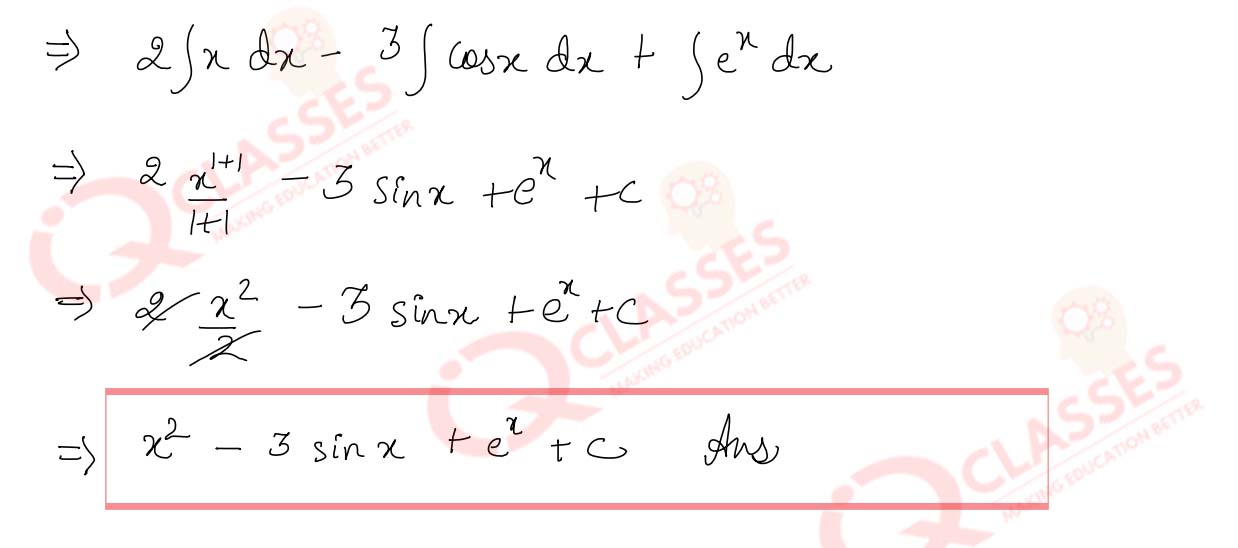 ⇒ 2∫x dx - 3∫cosx dx + ∫e^x dx
⇒ 2 x^{1+1}/1+1 - 3 sinx + e^x + c
⇒ 2 x^2/2 - 3 sinx + e^x + c
⇒ x^2 - 3 sinx + e^x + c Ans
iQ CLASSES
MAKING EDUCATION BETTER
iQ CLASSES
MAKING EDUCATION BETTER
iQ CLASSES
MAKING EDUCATION BETTER